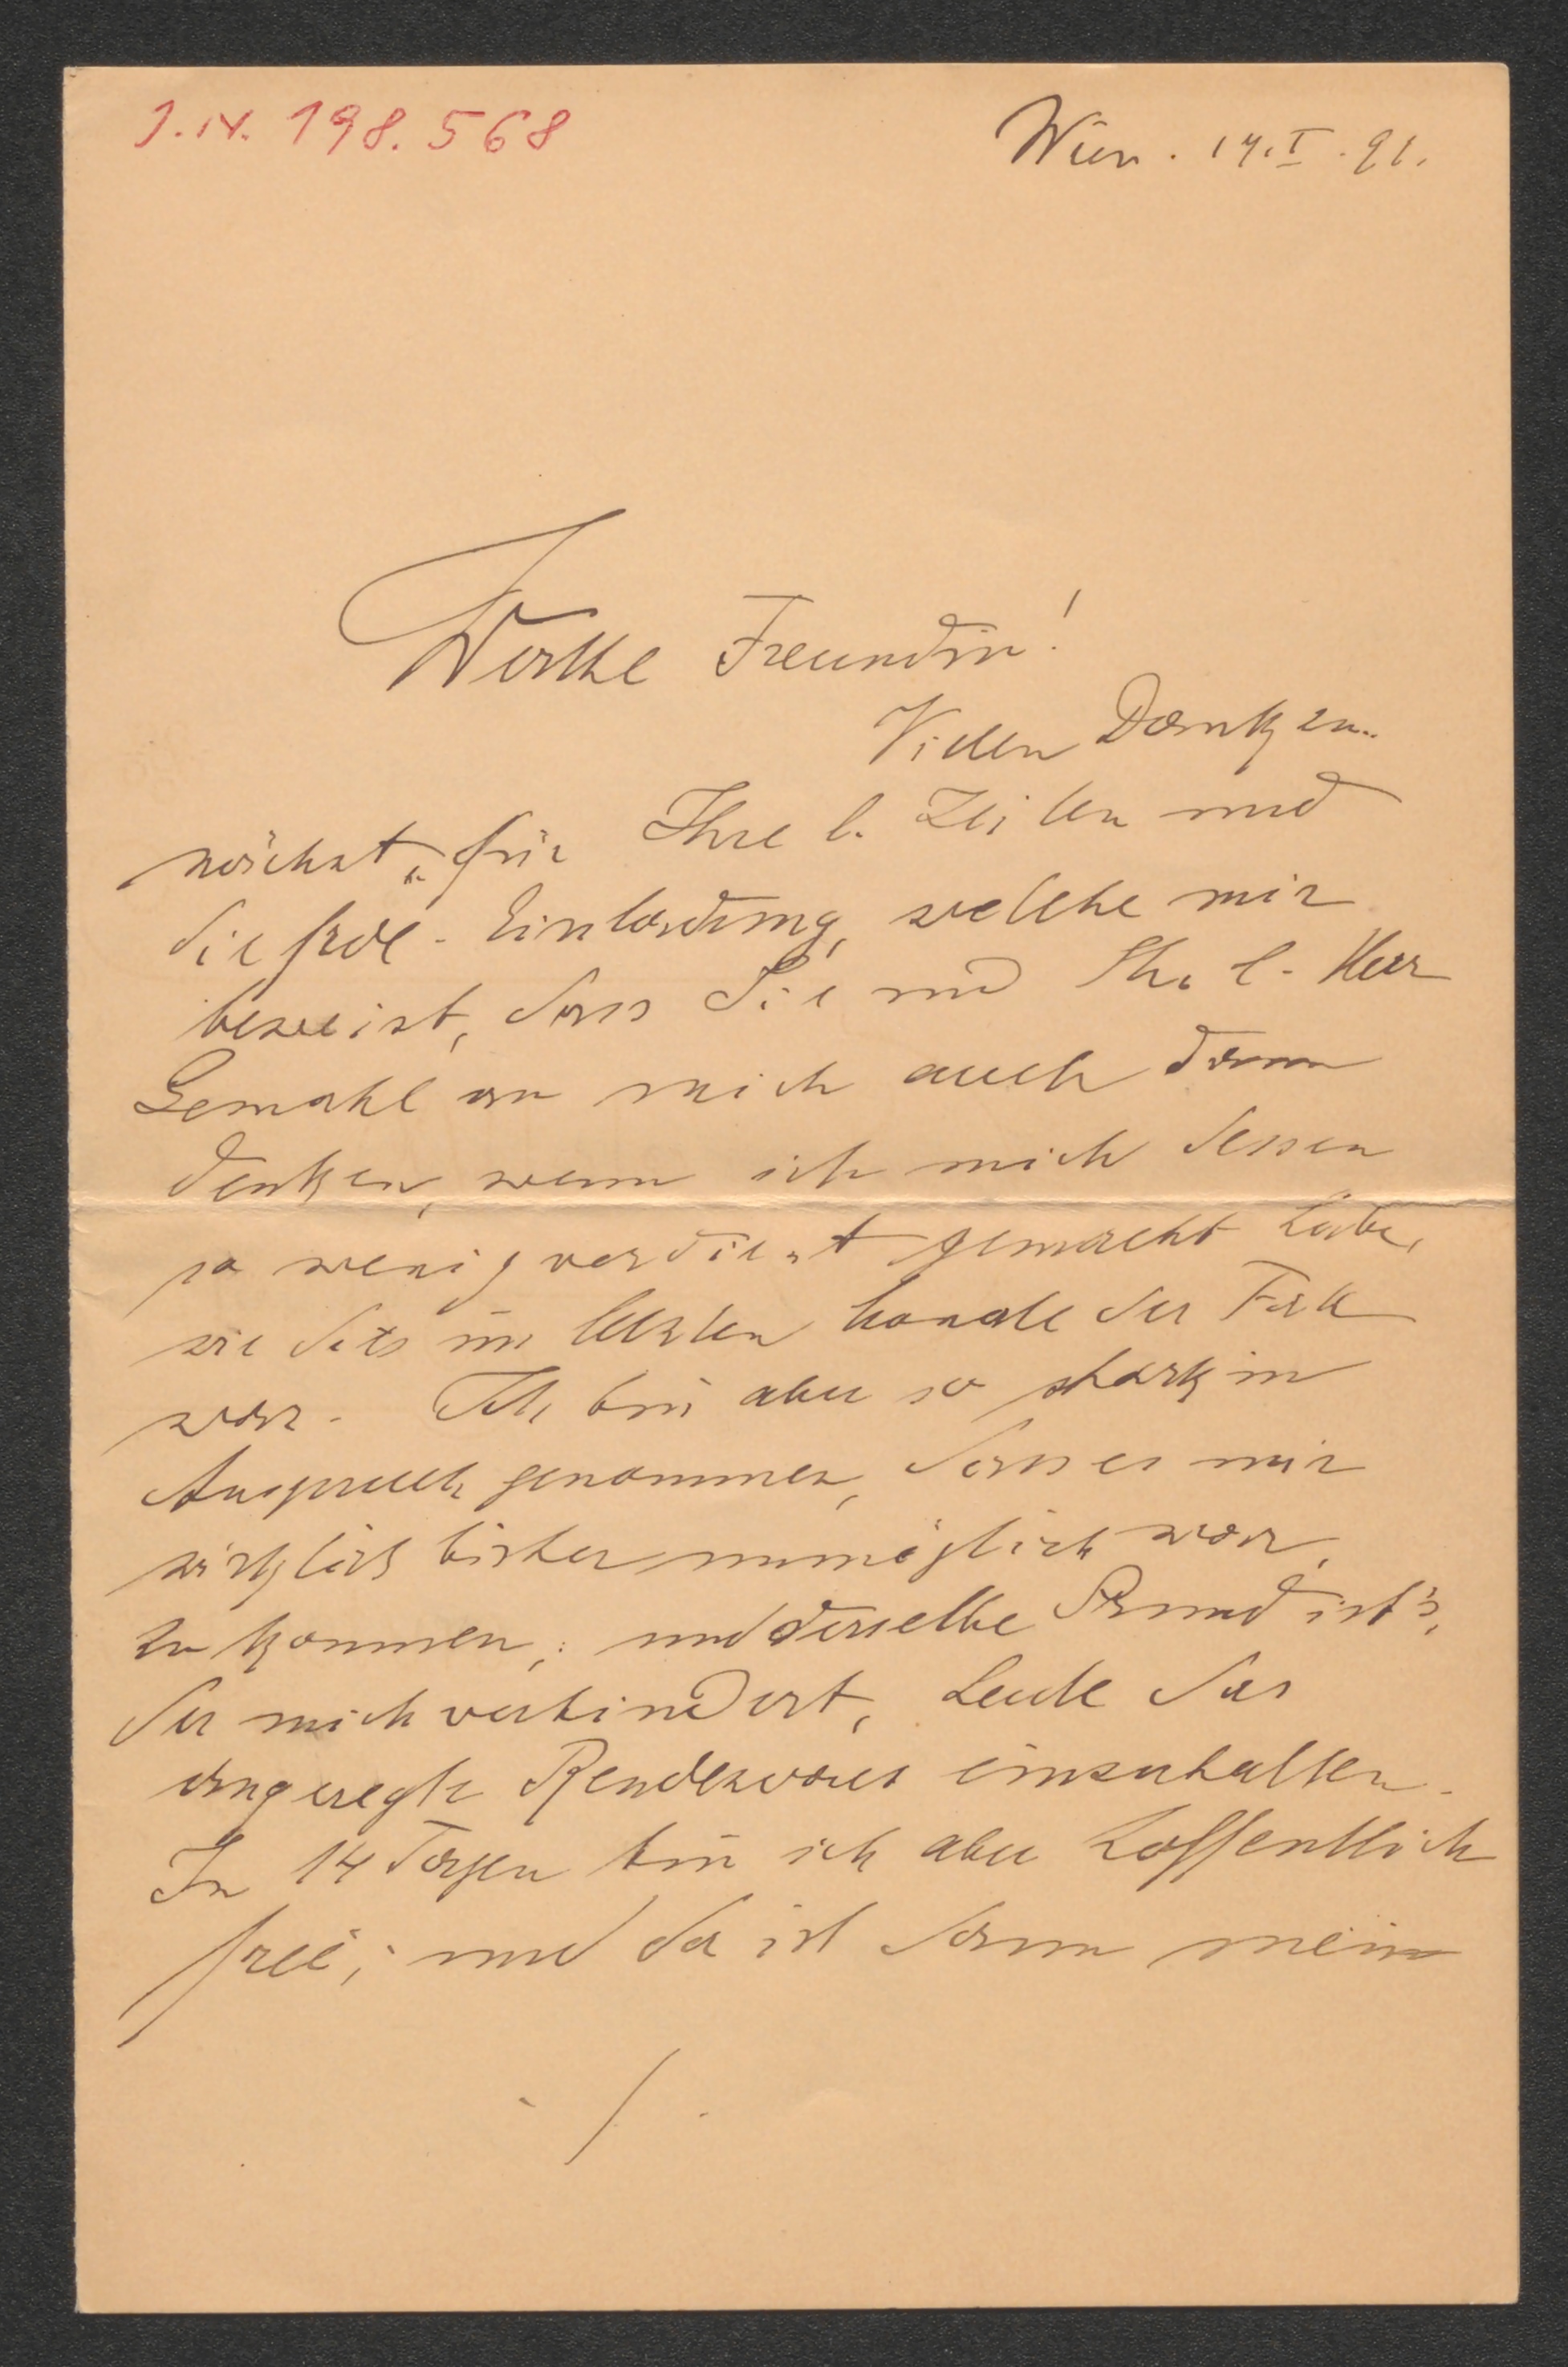 J.N. 198.568
Wien. 14.I.91.
Werthe Freundin!
Vielen Dank zu-
nächst, für Ihre l. Zeilen und
die frdl. Einladung, welche mir
beweist, dass Sie und Ihr l. Herr
Gemahl an mich auch dann
denken, wenn ich mich dessen
so wenig verdient gemacht habe,
wie dies im letzten Monate der Fall
war. Ich bin aber so stark in
Anspruch genommen, dass es mir
wirklich bisher unmöglich war,
zu kommen; und derselbe Grund ist's,
der mich verhindert, heute das
angeregte Rendezvous einzuhalten.
In 14 Tagen bin ich aber hoffentlich
frei; und da ist dann mein
./.